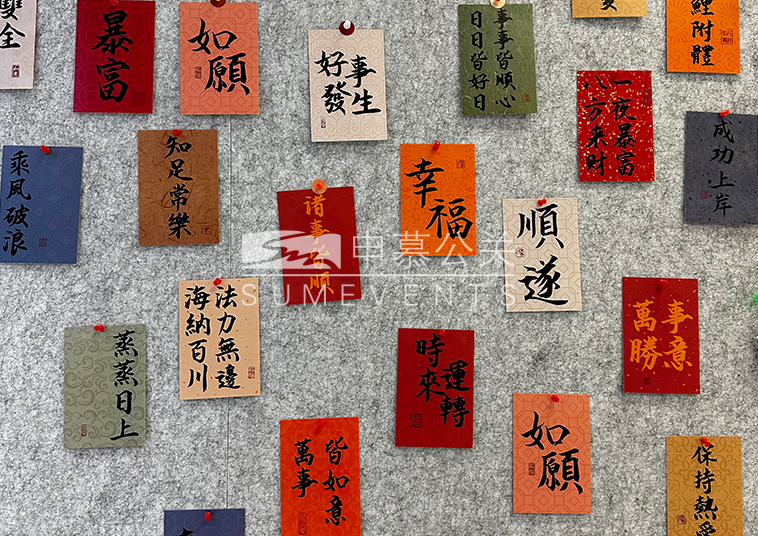 雙全
暴富
如願
好事
發生
事事皆順心
日日皆好日
鯉附體
一夜暴富
八方来財
成功上岸
乘風破浪
知足常樂
諸事皆順
幸福
順遂
申慕公关
SUMEVENTS
法力無邊
海納百川
萬事
勝意
蒸蒸日上
時來
運轉
如願
萬事
皆如意
保持熱愛